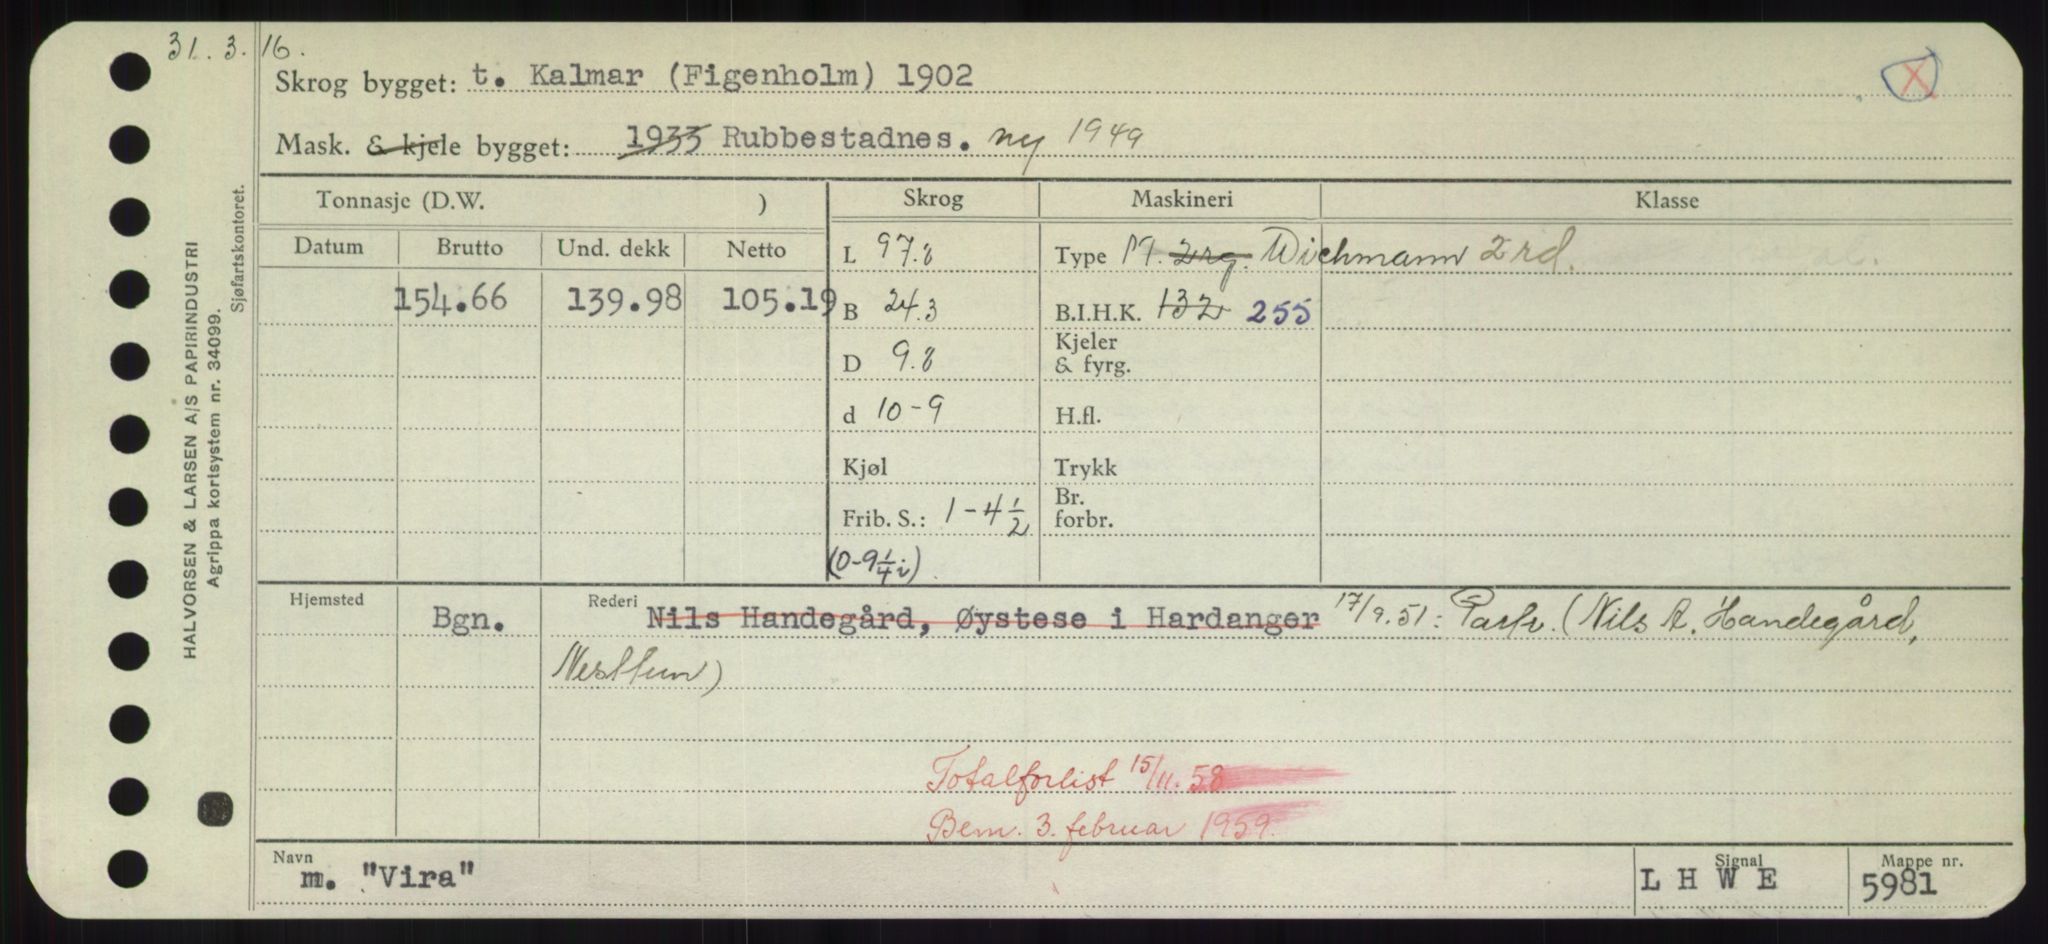 31. 3. 16.
Skrog bygget: t. Kalmar (Figenholm) 1902
X
Mask. & kjele bygget: 1933 Rubbestadnes. ny 1949
Tonnasje (D.W. ) Skrog Maskineri Klasse
Datum Brutto Und. dekk Netto
L 97.8 Type M. 2rg. Wichmann 2 rd.
154.66 139.98 105.19 B 24.3 B.I.H.K. 132 255
D 9.8 Kjeler & fyrg.
d 10-9 H.fl.
Kjøl Trykk
Frib. S.: 1-4 1/2 Br. forbr.
(0-9 1/4 i)
Hjemsted Bgn. Rederi Nils Handegård, Øystese i Hardanger 17/9.51: Partr. (Nils A. Handegård,
Nesttun)
Totalforlist 15/11.58
Bem. 3. februar 1959.
Navn m. "Vira" Signal L H W E Mappe nr. 5981
HALVORSEN & LARSEN A/S PAPIRINDUSTRI
Agrippa kortsystem nr. 34099.
Sjøfartskontoret.